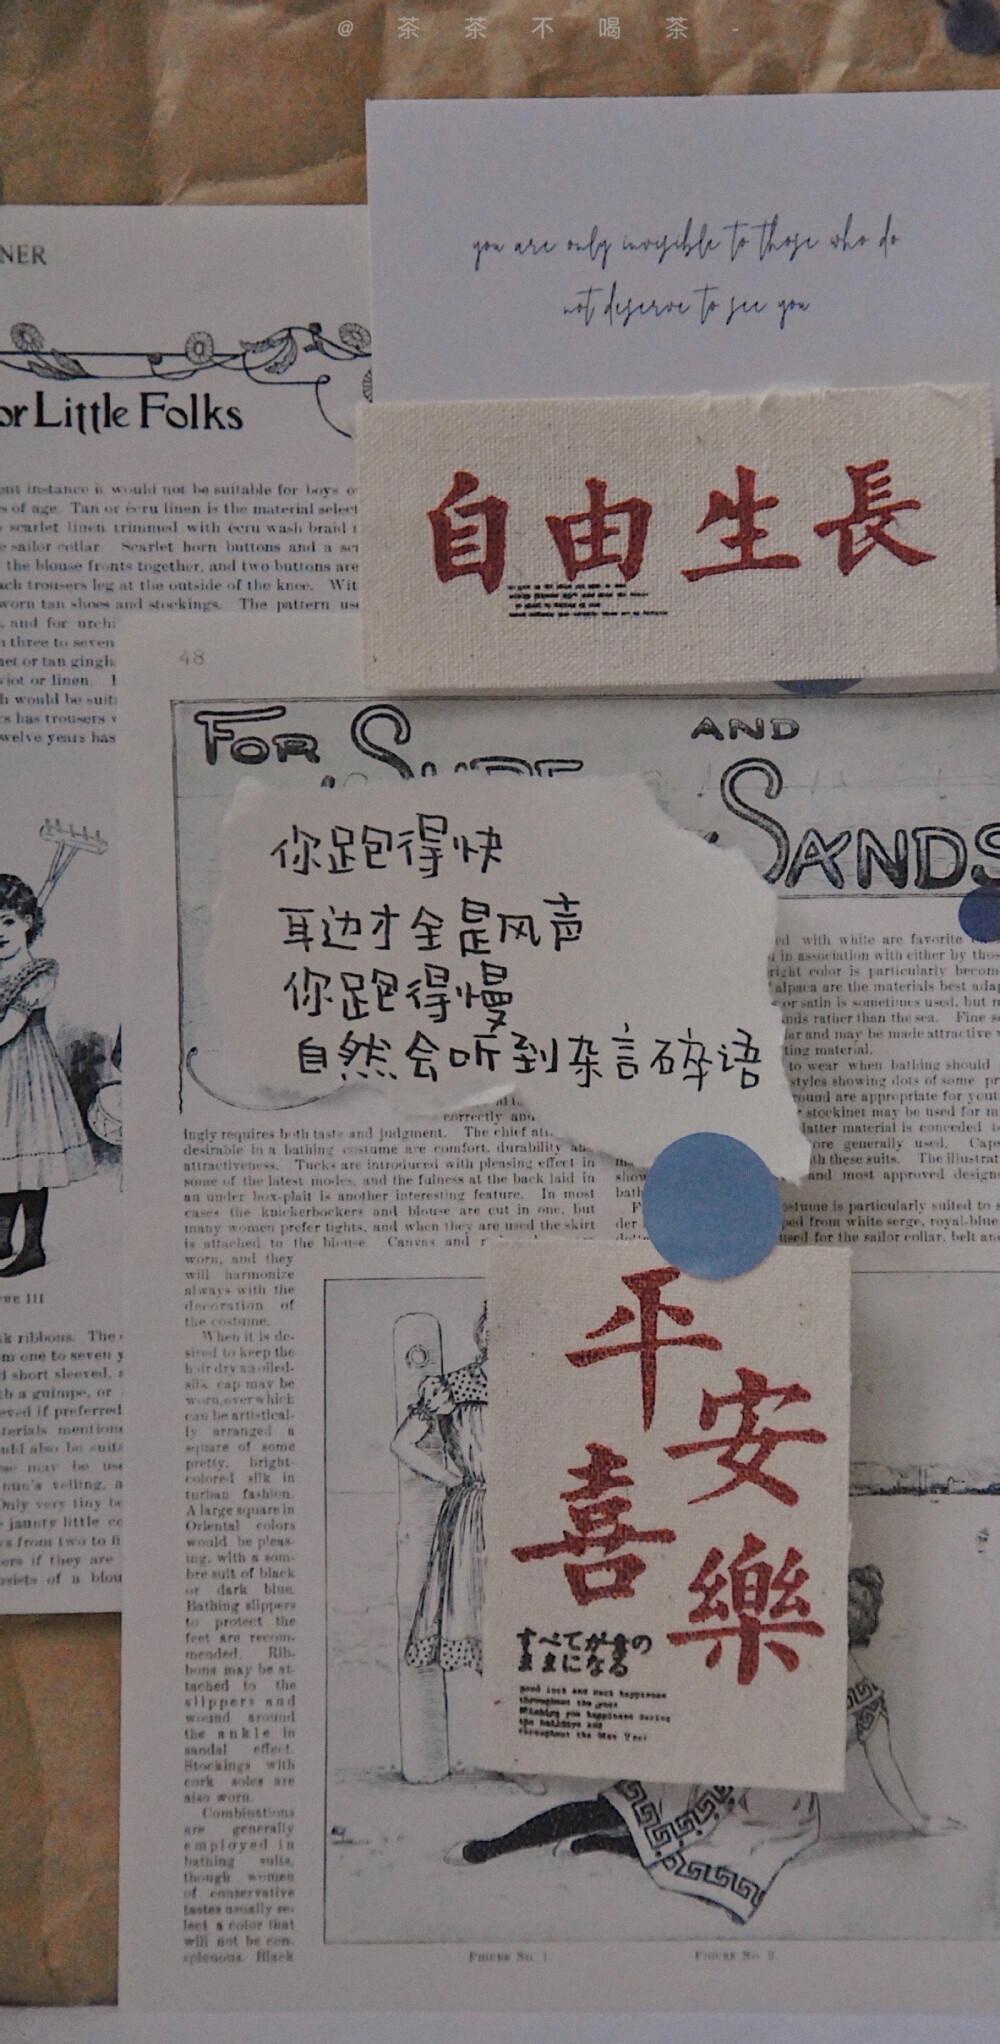 @茶茶不喝茶-
you are only invisible to those who do
not deserve to see you
NER
or Little Folks
ent instance it would not be suitable for boys o
s of age. Tan or écru linen is the material select
scarlet linen trimmed with écru wash braid t
sailor collar. Scarlet horn buttons and a
the blouse fronts together, and two buttons are
ach trousers leg at the outside of the knee. Wit
worn tan shoes and stockings. The pattern
and for
three to seven
or tan
or linen.
would be
has trousers
twelve years has
自由生長
48
FOR
AND
SANDS
你跑得快
耳边才全是风声
你跑得慢
自然会听到杂言碎语
ed with white are favorite
in association with either by
right color is particularly
alpaca are the materials best
or satin is sometimes used, but
rather than the sea. Fine
and may be made attractive
ting material.
to wear when bathing should
styles showing dots of some
are appropriate for
stockinet may be used for
latter material is conceded
generally used.
these suits. The
and most approved
costume is particularly suited to
from white serge,
used for the sailor collar, belt
correctly and
ingly requires both taste and judgment. The chief
desirable in a bathing costume are comfort, durability
attractiveness. Tucks are introduced with pleasing effect in
some of the latest modes, and the fulness at the back laid in
an under box-plait is another interesting feature. In most
cases the knickerbockers and blouse are cut in one, but
many women prefer tights, and when they are used the skirt
is attached to the blouse. Canvas and
worn, and they
will harmonize
always with the
decoration of
the costume.
When it is de-
sired to keep the
hair dry an oiled-
silk cap may be
worn, over which
can be artistical-
ly arranged a
square of some
pretty, bright-
colored silk in
turban fashion.
A large square in
Oriental colors
would be pleas-
ing, with a som-
bre suit of black
or dark blue.
Bathing slippers
to protect the
feet are recom-
mended. Rib-
bons may be at-
tached to the
slippers and
wound around
the ankle in
sandal effect.
Stockings with
cork soles are
also worn.
Combinations
are generally
employed in
bathing suits,
though women
of conservative
tastes usually se-
lect a color that
will not be con-
spicuous. Black
III
ribbons. The
from one to seven
short sleeved,
a guimpe, or
if preferred
materials
also be
may be
veiling,
Only very tiny
jaunty little
from two to
if they are
of a
平安
喜樂
good luck and much happiness
throughout the year
Wishing you happiness during
the holidays and
throughout the New Year
FIGURE NO. 1.
FIGURE NO. 2.